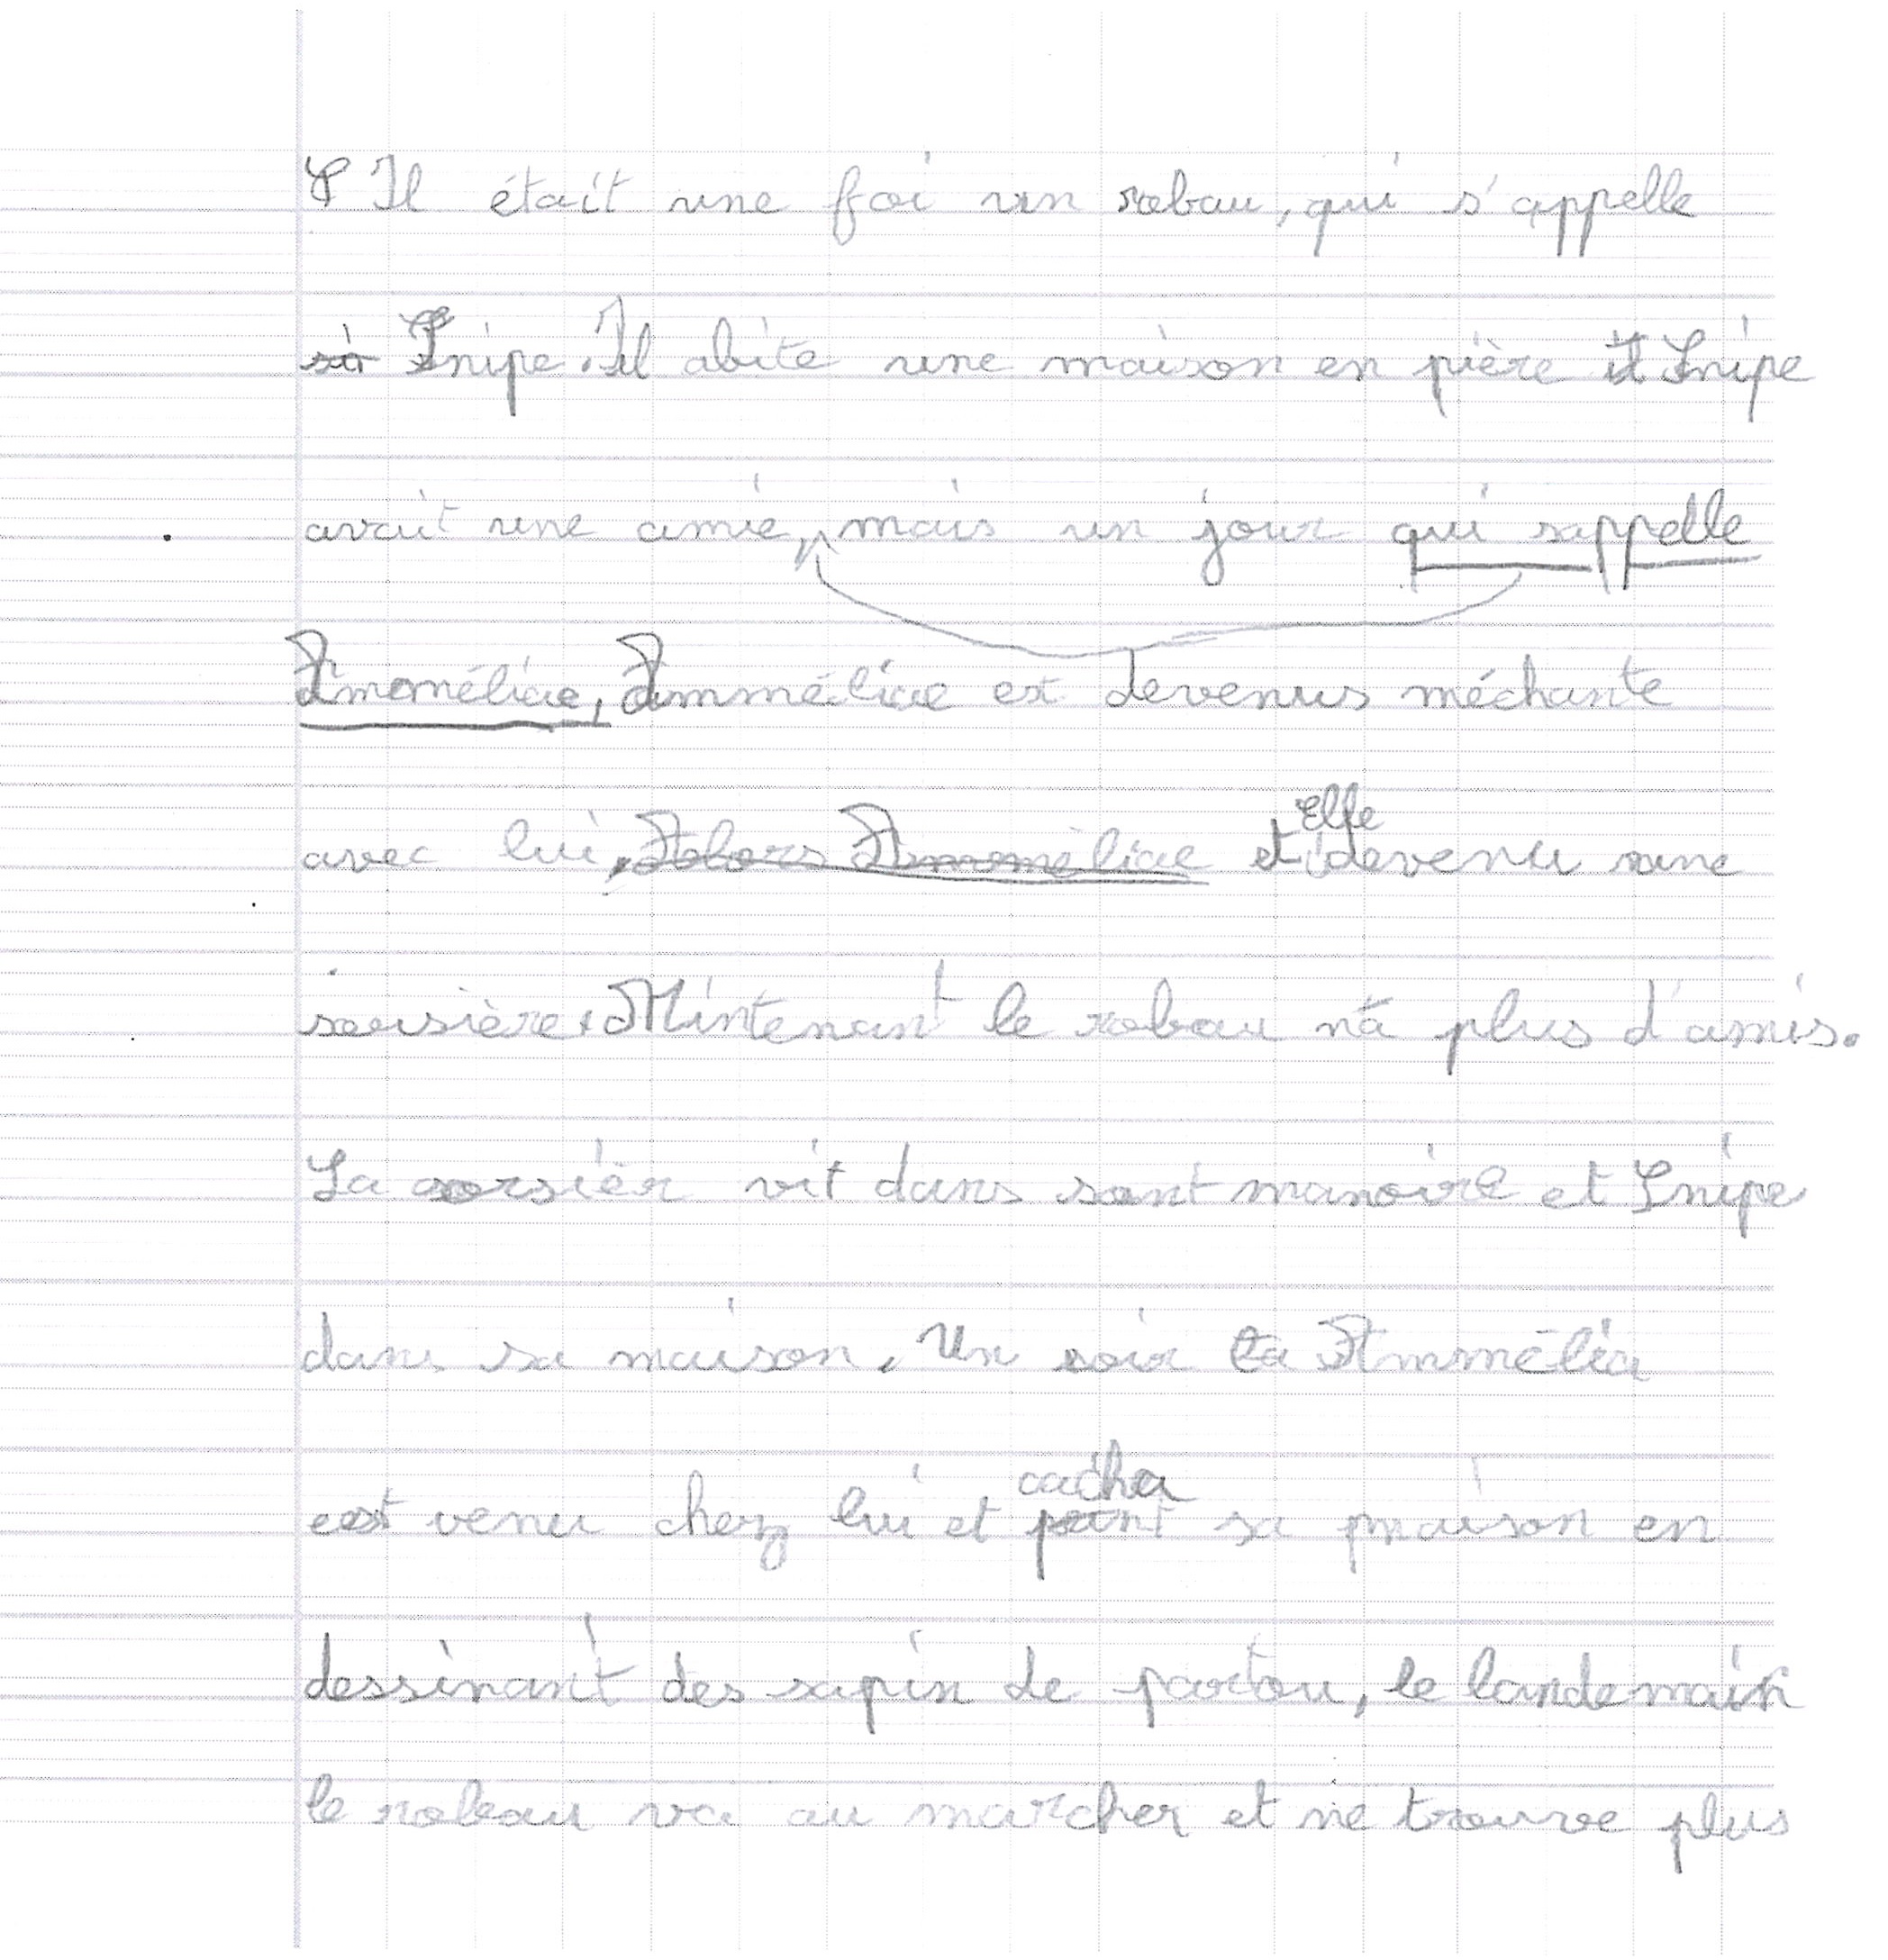 Il était une foi un robau, qui s'appelle
Snipe. Il abite une maison en pière Snipe
avait une amie, mais un jour qui sappelle
Amméliae, Amméliae est devenus méchante
avec lui, Alors Amméliae et Elle devenu une
sorsière. Mintenant le robau n'a plus d'amis.
La sorsièr vit dans sont manoire et Snipe
dans sa maison. Un soir Ammélia
est venu chez lui et cacha sa maison en
dessinant des sapin de partou, le landemain
le robau va au marcher et ne trouve plus